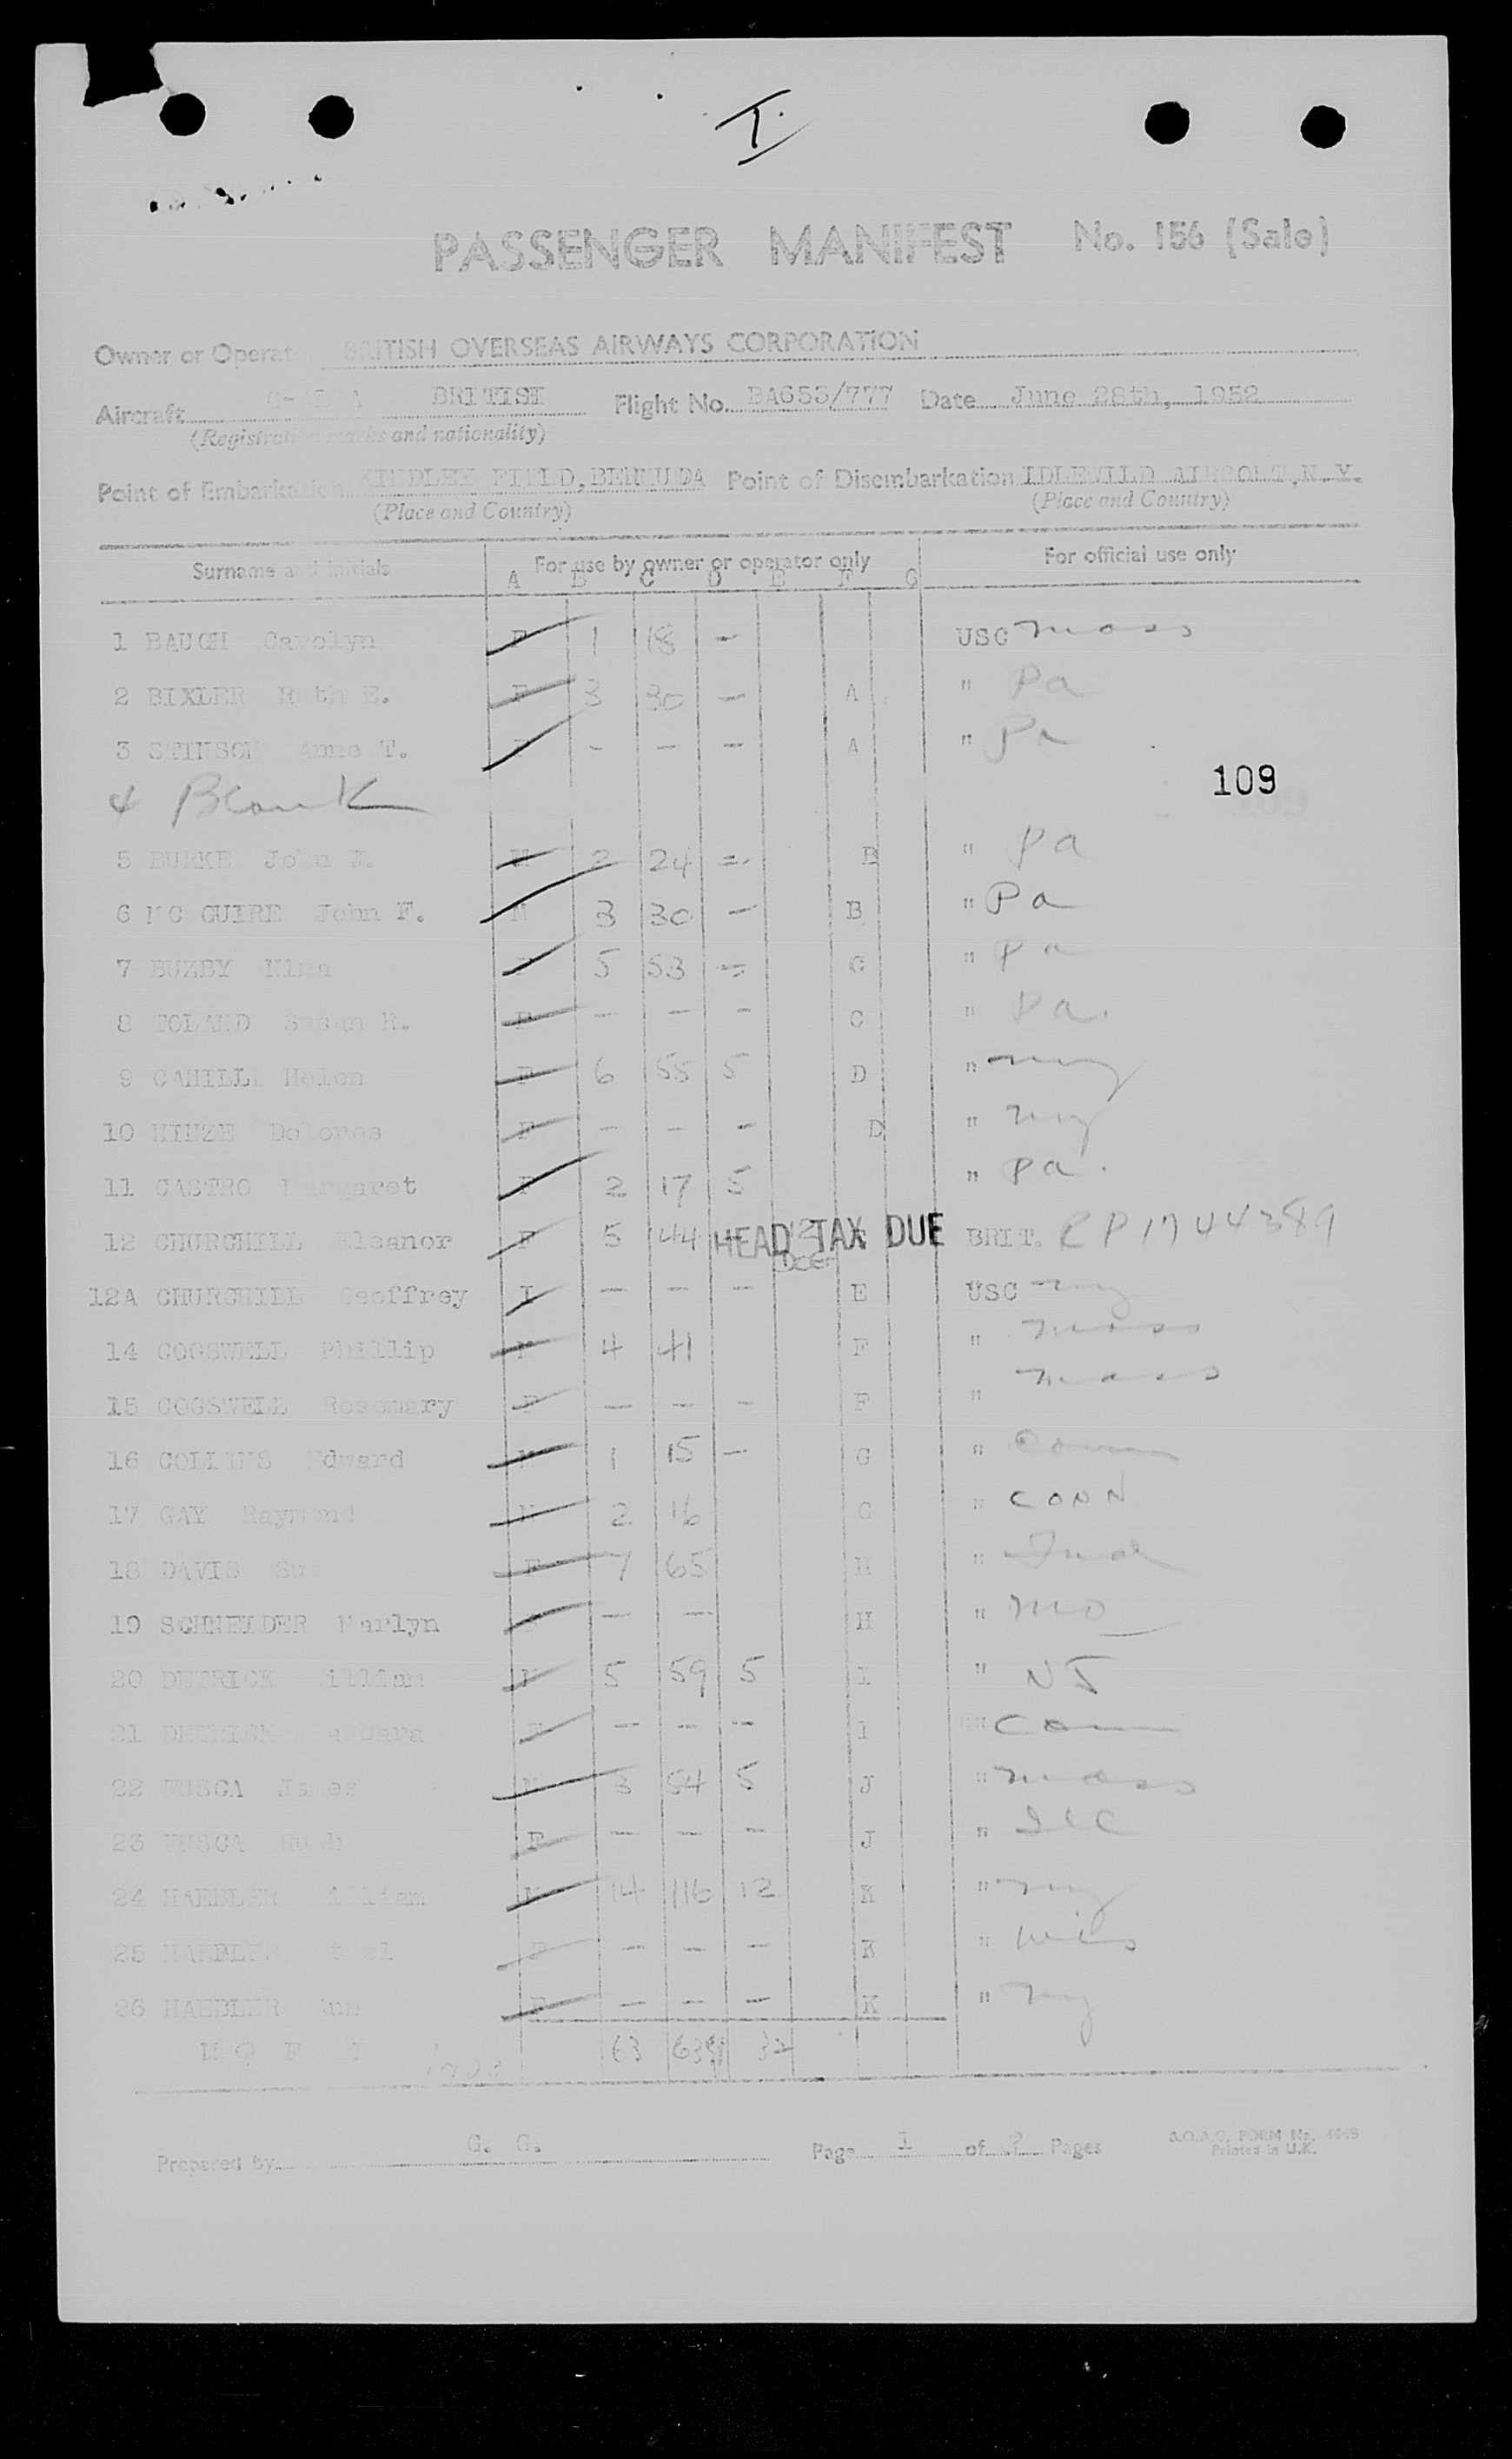 I.
PASSENGER MANIFEST No. 156 (Sale)
Owner or Operat BRITISH OVERSEAS AIRWAYS CORPORATION
Aircraft BRITISH Flight No. BA653/777 Date June 28th, 1952
(Registration marks and nationality)
Point of Embarkation KINDLEY FIELD, BERMUDA Point of Disembarkation IDLEWILD AIRPORT, N.Y.
(Place and Country) (Place and Country)
Surname and initials For use by owner or operator only For official use only
A B C D E F G
1 BAUGH Carolyn F 1 18 - USC mass
2 BIXLER Ruth E. F 3 30 - A " Pa
3 STINSON Anne T. F - - - A " Pa
109
4 Blank
5 BURKE John J. M 2 24 - B " Pa
6 MC GUIRE John F. M 3 30 - B " Pa
7 BUZBY Nina F 5 53 - C " Pa
8 TOLAND Susan R. F - - - C " Pa.
9 CAHILL Helen F 6 55 5 D " ny
10 HINZE Dolores F - - - D " ny
11 CASTRO Margaret F 2 17 5 " Pa.
12 CHURCHILL Eleanor F 5 44 - HEAD TAX DUE BRIT. RP1744389
12A CHURCHILL Geoffrey I - - - E USC ny
14 COGSWELL Phillip M 4 41 F " mass
15 COGSWELL Rosemary F - - - F " mass
16 COLLINS Edward M 1 15 - G " Conn
17 GAY Raymond M 2 16 G " CONN
18 DAVIS Sue F 7 65 H " Ind
19 SCHNEIDER Marlyn F - - H " Mo
20 DETRICK William M 5 59 5 I " NJ
21 DETRICK Barbara F - - - I " Conn
22 FUSCA James M 3 54 5 J " mass
23 FUSCA Ruth F - - - J " Ill
24 HAEBLER William M 14 116 12 K " ny
25 HAEBLER F - - - K " Wis
26 HAEBLER Ann F - - - K " ny
M 9 F I 63 32
Prepared by G. G. Page 1 of 2 Pages
B.O.A.C. FORM No.
Printed in U.K.